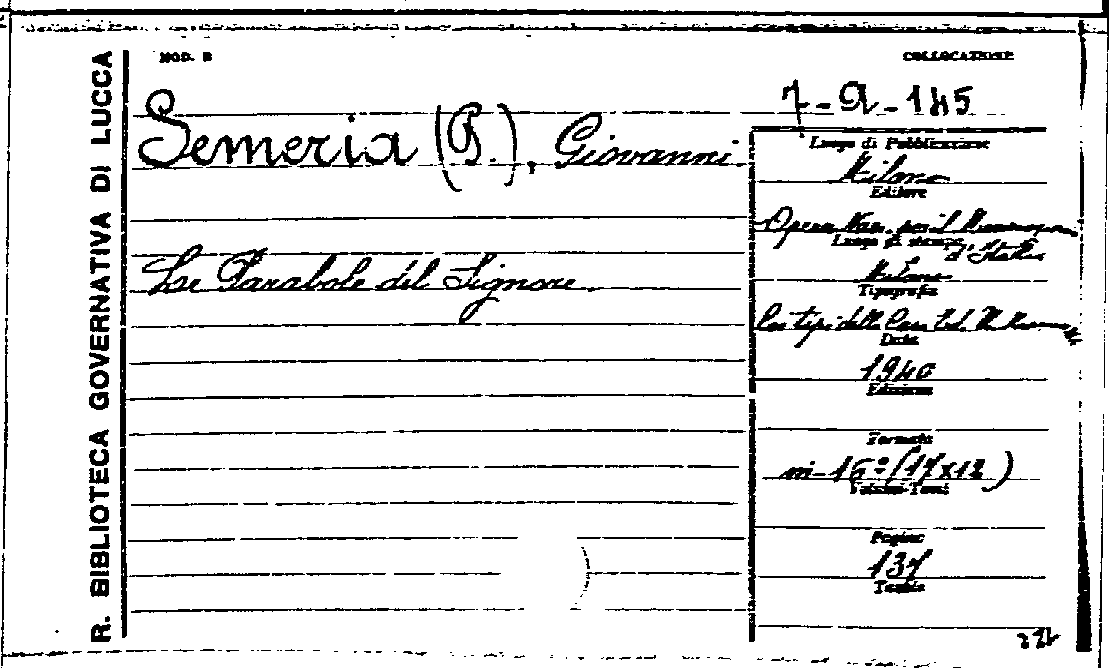 R. BIBLIOTECA GOVERNATIVA DI LUCCA
MOD. B
COLLOCAZIONE
7-9-145
Semeria (P.), Giovanni.
Le Parabole del Signore.
Luogo di Pubblicazione
Milano
Editore
Opera Naz. per il Mezzogiorno
d'Italia
Luogo di stampa
Milano
Tipografia
Coi tipi della Casa Ed.
Data
1940
Edizione
Formato
in-16º (17x12)
Volumi-Tomi
Pagine
137
Tavole